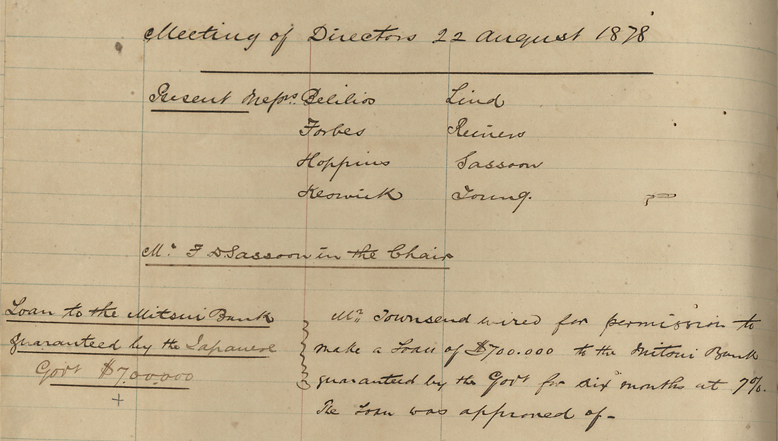 Meeting of Directors 22 August 1878
Present Messrs Belilios Lind
Forbes Reiners
Hoppius Sassoon
Keswick Young.
Mr F D Sassoon in the Chair
Loan to the Mitsui Bank
guaranteed by the Japanese
Govt $700.000
Mr Townsend wired for permission to
make a Loan of $700.000 to the Mitsui Bank
guaranteed by the Govt for six months at 7%.
The Loan was approved of -